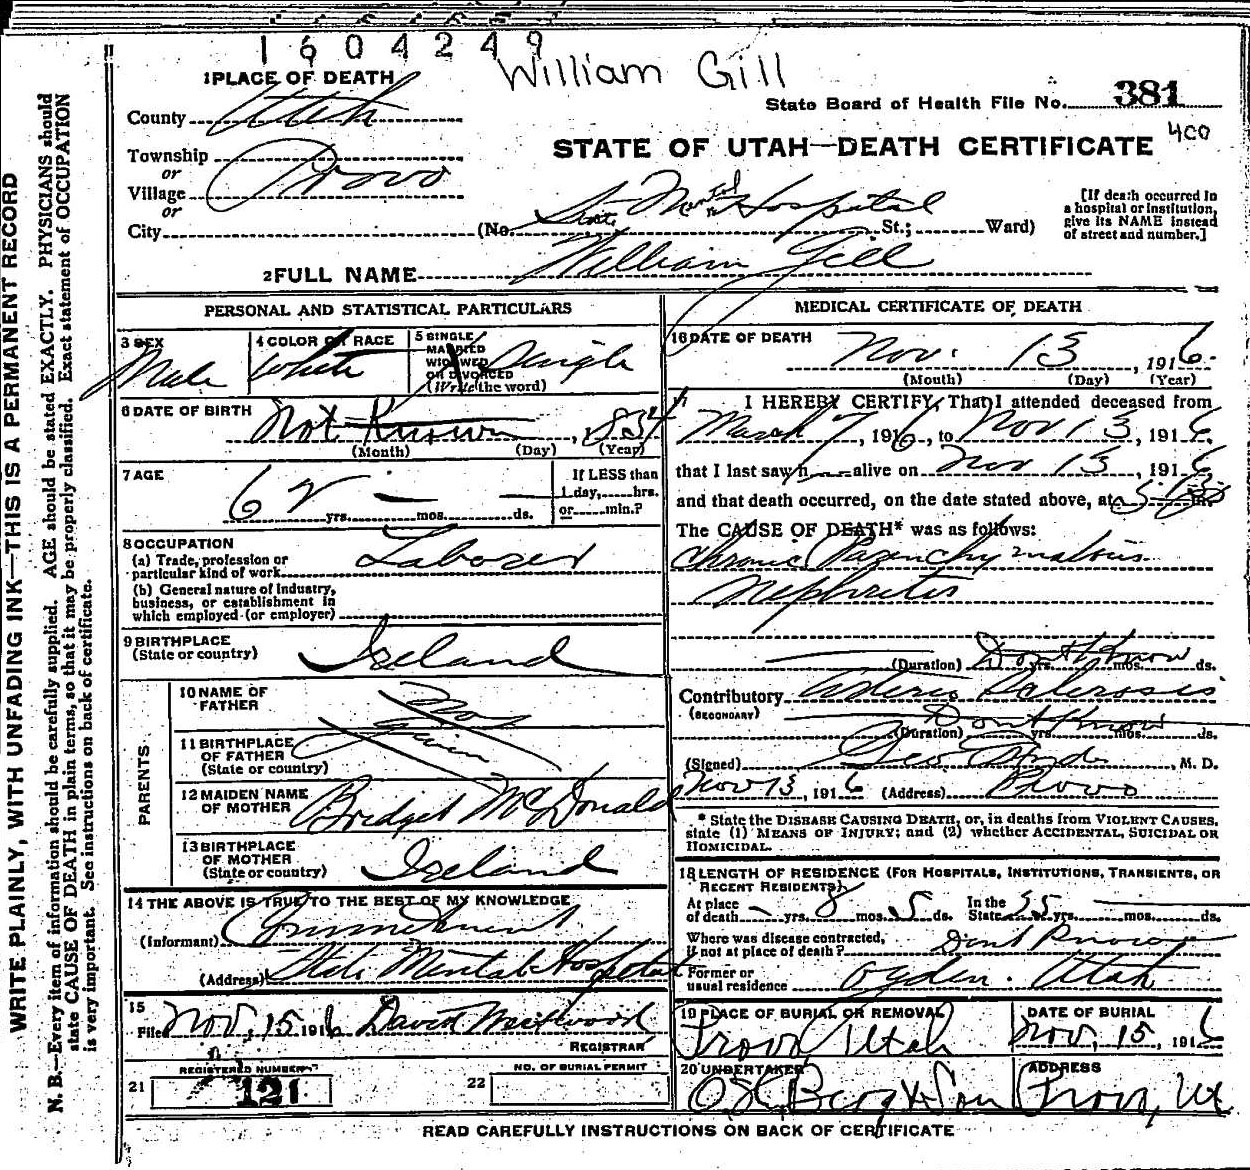 1604249
William Gill
1 PLACE OF DEATH
State Board of Health File No. 381
County Utah
400
STATE OF UTAH—DEATH CERTIFICATE
Township
or
Village Provo
or
City (No. State Mental Hospital St.; Ward)
[If death occurred in a hospital or institution, give its NAME instead of street and number.]
2 FULL NAME William Gill
PERSONAL AND STATISTICAL PARTICULARS
3 SEX Male
4 COLOR OR RACE White
5 SINGLE MARRIED WIDOWED OR DIVORCED (Write the word) Single
6 DATE OF BIRTH Not Known, 1854
(Month) (Day) (Year)
7 AGE 62 yrs. — mos. — ds.
If LESS than 1 day, hrs. or min.?
8 OCCUPATION
(a) Trade, profession or particular kind of work Laborer
(b) General nature of industry, business, or establishment in which employed (or employer)
9 BIRTHPLACE (State or country) Ireland
PARENTS
10 NAME OF FATHER
11 BIRTHPLACE OF FATHER (State or country)
12 MAIDEN NAME OF MOTHER Bridget McDonald
13 BIRTHPLACE OF MOTHER (State or country) Ireland
14 THE ABOVE IS TRUE TO THE BEST OF MY KNOWLEDGE
(Informant)
(Address) State Mental Hospital
15
Filed Nov. 15 1916 David Westwood
REGISTRAR
21 REGISTERED NUMBER 121
22 NO. OF BURIAL PERMIT
MEDICAL CERTIFICATE OF DEATH
16 DATE OF DEATH Nov. 13, 1916.
(Month) (Day) (Year)
17 I HEREBY CERTIFY, That I attended deceased from
March 7, 1916, to Nov 13, 1916,
that I last saw h alive on Nov 13, 1916
and that death occurred, on the date stated above, at m.
The CAUSE OF DEATH* was as follows:
Chronic Parenchymatous
Nephritis
(Duration) Don't Know yrs. mos. ds.
Contributory Arterio Sclerosis
(SECONDARY)
(Duration) Don't Know yrs. mos. ds.
(Signed) Geo , M. D.
Nov 13, 1916 (Address) Provo
* State the DISEASE CAUSING DEATH, or, in deaths from VIOLENT CAUSES, state (1) MEANS OF INJURY; and (2) whether ACCIDENTAL, SUICIDAL OR HOMICIDAL.
18 LENGTH OF RESIDENCE (FOR HOSPITALS, INSTITUTIONS, TRANSIENTS, OR RECENT RESIDENTS)
At place of death — yrs. 8 mos. 5 ds. In the State 35 yrs. mos. ds.
Where was disease contracted, if not at place of death? Don't Know
Former or usual residence Ogden. Utah
19 PLACE OF BURIAL OR REMOVAL Provo Utah
DATE OF BURIAL Nov. 15, 1916
20 UNDERTAKER Berg & Son
ADDRESS Provo, Ut
READ CAREFULLY INSTRUCTIONS ON BACK OF CERTIFICATE
WRITE PLAINLY, WITH UNFADING INK—THIS IS A PERMANENT RECORD
N. B.—Every item of information should be carefully supplied. AGE should be stated EXACTLY. PHYSICIANS should
state CAUSE OF DEATH in plain terms, so that it may be properly classified. Exact statement of OCCUPATION
is very important. See instructions on back of certificate.